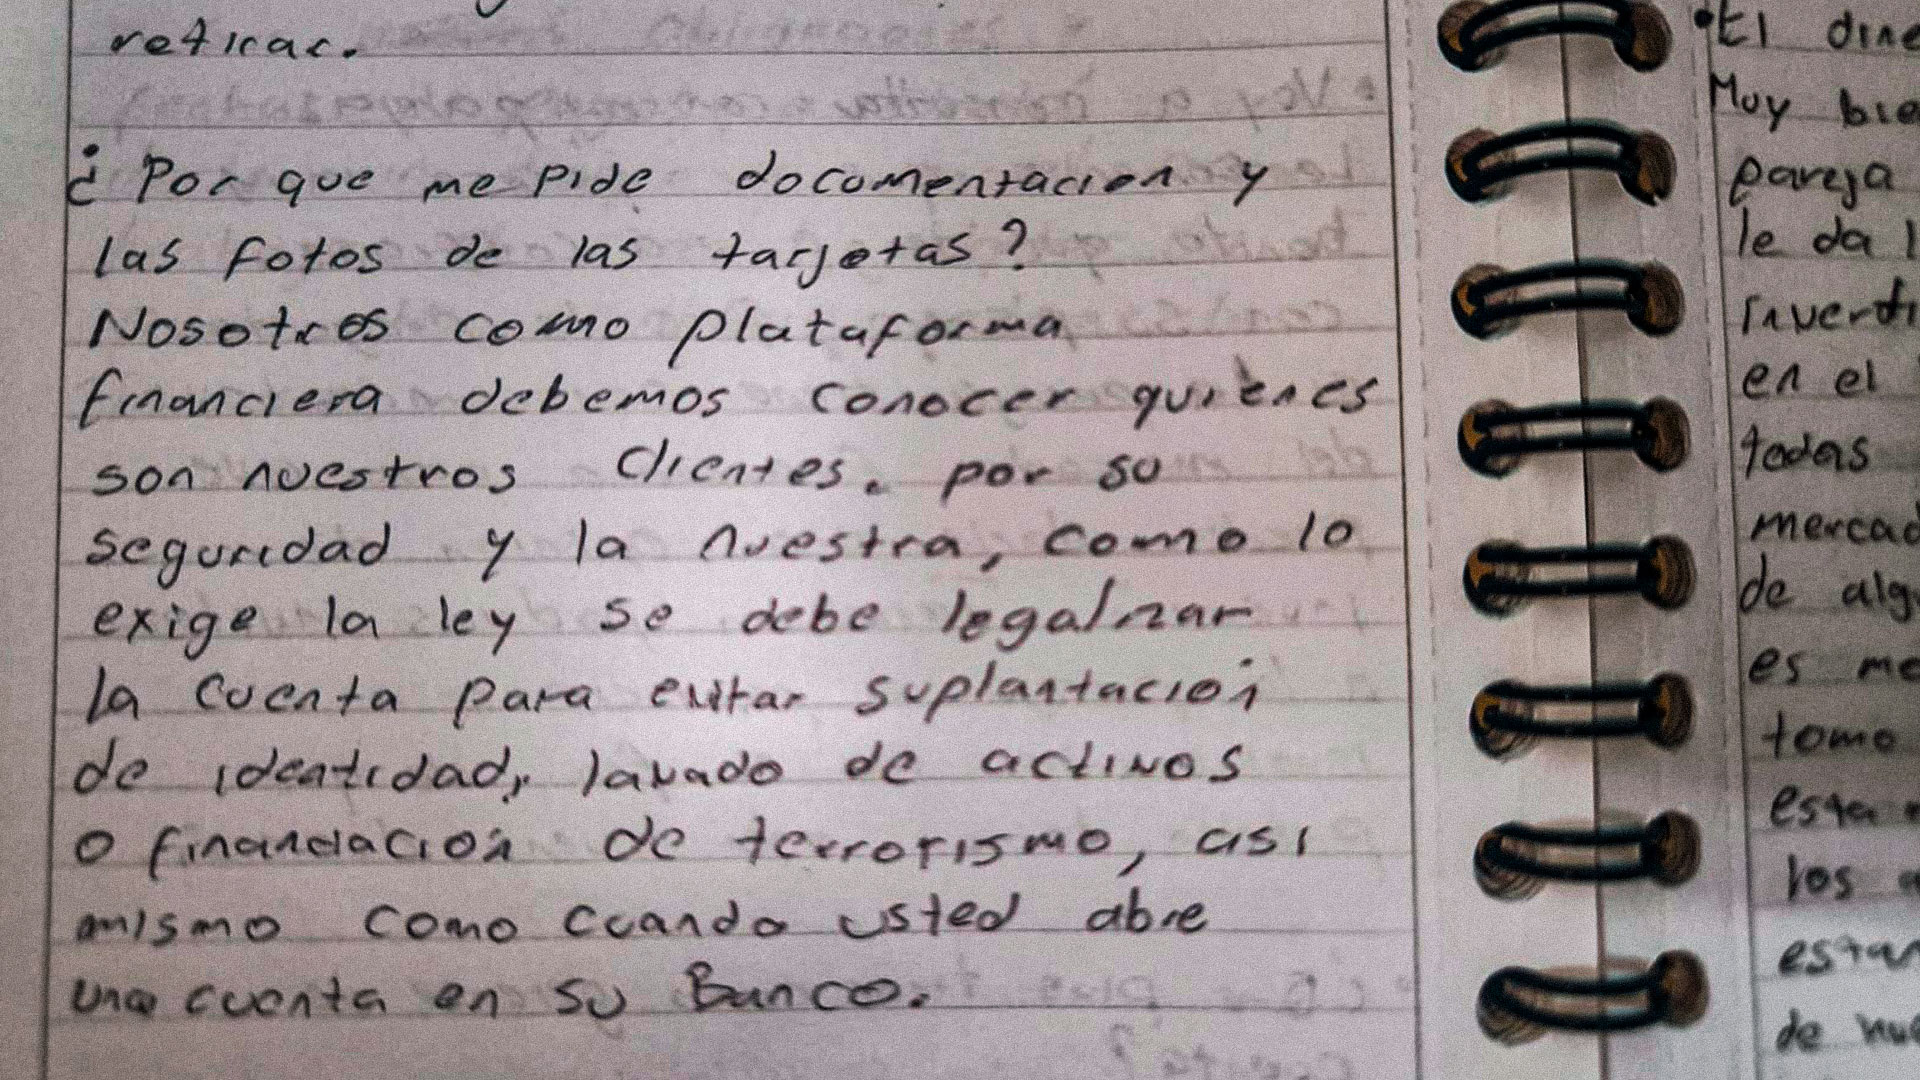 retirar.
¿Por que me pide documentacion y
las fotos de las tarjetas?
Nosotros como plataforma
financiera debemos conocer quienes
son nuestros clientes. por su
seguridad y la nuestra, como lo
exige la ley se debe legalizar
la cuenta para evitar suplantación
de identidad, lavado de activos
o financiación de terrorismo, asi
mismo como cuando usted abre
una cuenta en su Banco.
•El dine
Muy bie
pareja
le da l
inverti
en el
todas
mercad
de alg
es me
tomo
esta
los
estan
de nue